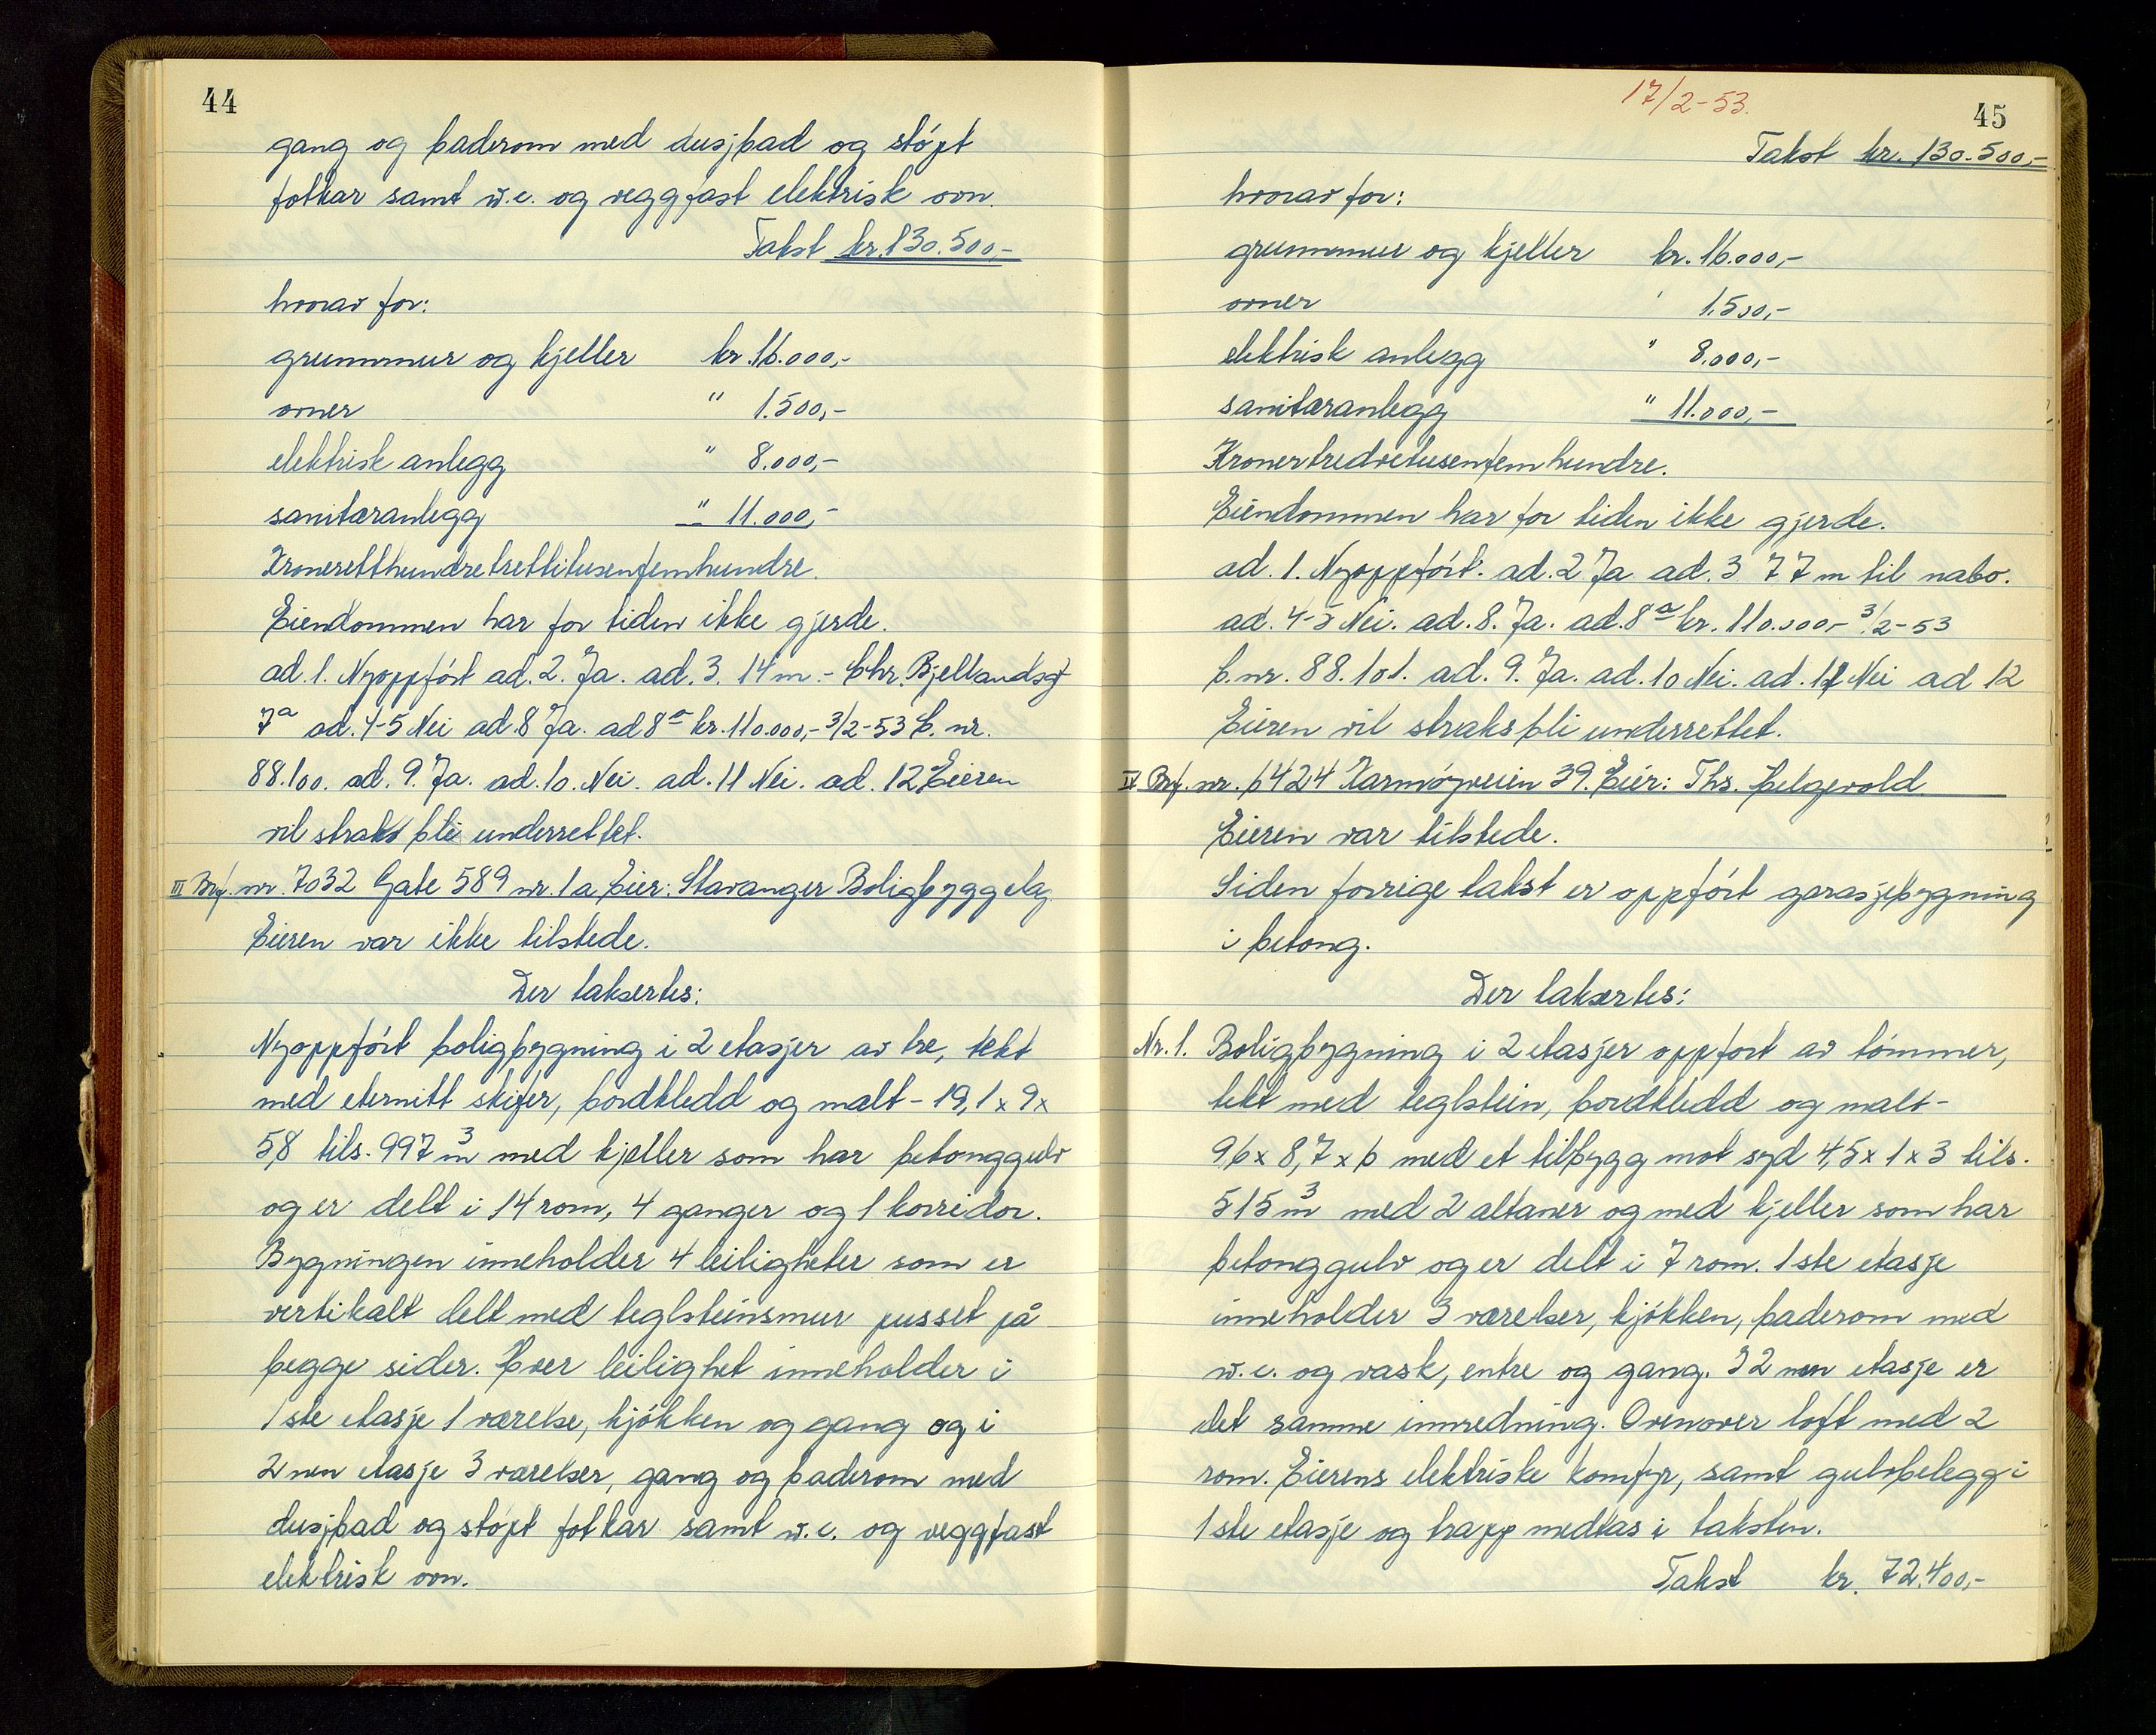 44
gang og baderom med dusjbad og støpt
fotkar samt w.c. og veggfast elektrisk ovn.
Takst kr. 130.500,-
hvorav for:
grunnmur og kjeller kr. 16.000,-
ovner " 1.500,-
elektrisk anlegg " 8.000,-
sanitæranlegg " 11.000,-
Kroneretthundretrettitusenfemhundre.
Eiendommen har for tiden ikke gjerde.
ad. 1. Nyoppført ad. 2. Ja. ad. 3. 14 m. - Chr. Bjellandsgt
7a ad. 4-5 Nei ad. 8 Ja. ad 8a kr. 110.000,- 3/2-53 C. nr.
88.100. ad. 9. Ja. ad. 10. Nei. ad. 11 Nei. ad. 12 Eieren
vil straks bli underrettet.
III Brf. nr. 7032 Gate 589 nr. 1a Eier: Stavanger Boligbyggelag
Eieren var ikke tilstede.
Der taksertes:
Nyoppført boligbygning i 2 etasjer av tre, tekt
med eternitt skifer, bordkledd og malt - 19,1 x 9 x
5,8 tils. 997 m3 med kjeller som har betonggulv
og er delt i 14 rom, 4 ganger og 1 korridor.
Bygningen inneholder 4 leiligheter som er
vertikalt delt med teglsteinsmur pusset på
begge sider. Hver leilighet inneholder i
1ste etasje 1 værelse, kjøkken og gang og i
2nen etasje 3 værelser, gang og baderom med
dusjbad og støpt fotkar samt w.c. og veggfast
elektrisk ovn.
17/2-53.
45
Takst kr. 130.500,-
hvorav for:
grunnmur og kjeller kr. 16.000,-
ovner " 1.500,-
elektrisk anlegg " 8.000,-
sanitæranlegg " 11.000,-
Kronertredvetusenfemhundre.
Eiendommen har for tiden ikke gjerde.
ad. 1. Nyoppført. ad. 2 Ja ad. 3 77 m til nabo.
ad. 4-5 Nei. ad. 8. Ja. ad. 8a kr. 110.000,- 3/2-53
C. nr. 88.101. ad. 9. Ja. ad. 10 Nei. ad. 11 Nei ad 12
Eieren vil straks bli underrettet.
IV Brf. nr. 6424 Karmøyveien 39. Eier: Ths. Helgevold
Eieren var tilstede.
Siden forrige takst er oppført garasjebygning
i betong.
Der taksertes:
Nr. 1. Boligbygning i 2 etasjer oppført av tømmer,
tekt med teglstein, bordkledd og malt -
9,6 x 8,7 x 6 med et tilbygg mot syd 4,5 x 1 x 3 tils.
515 m3 med 2 altaner og med kjeller som har
betonggulv og er delt i 7 rom. 1ste etasje
inneholder 3 værelser, kjøkken, baderom med
w.c. og vask, entre og gang. I 2nen etasje er
det samme innredning. Ovenover loft med 2
rom. Eierens elektriske komfyr, samt gulvbelegg i
1ste etasje og trapp medtas i taksten.
Takst kr. 72.400,-